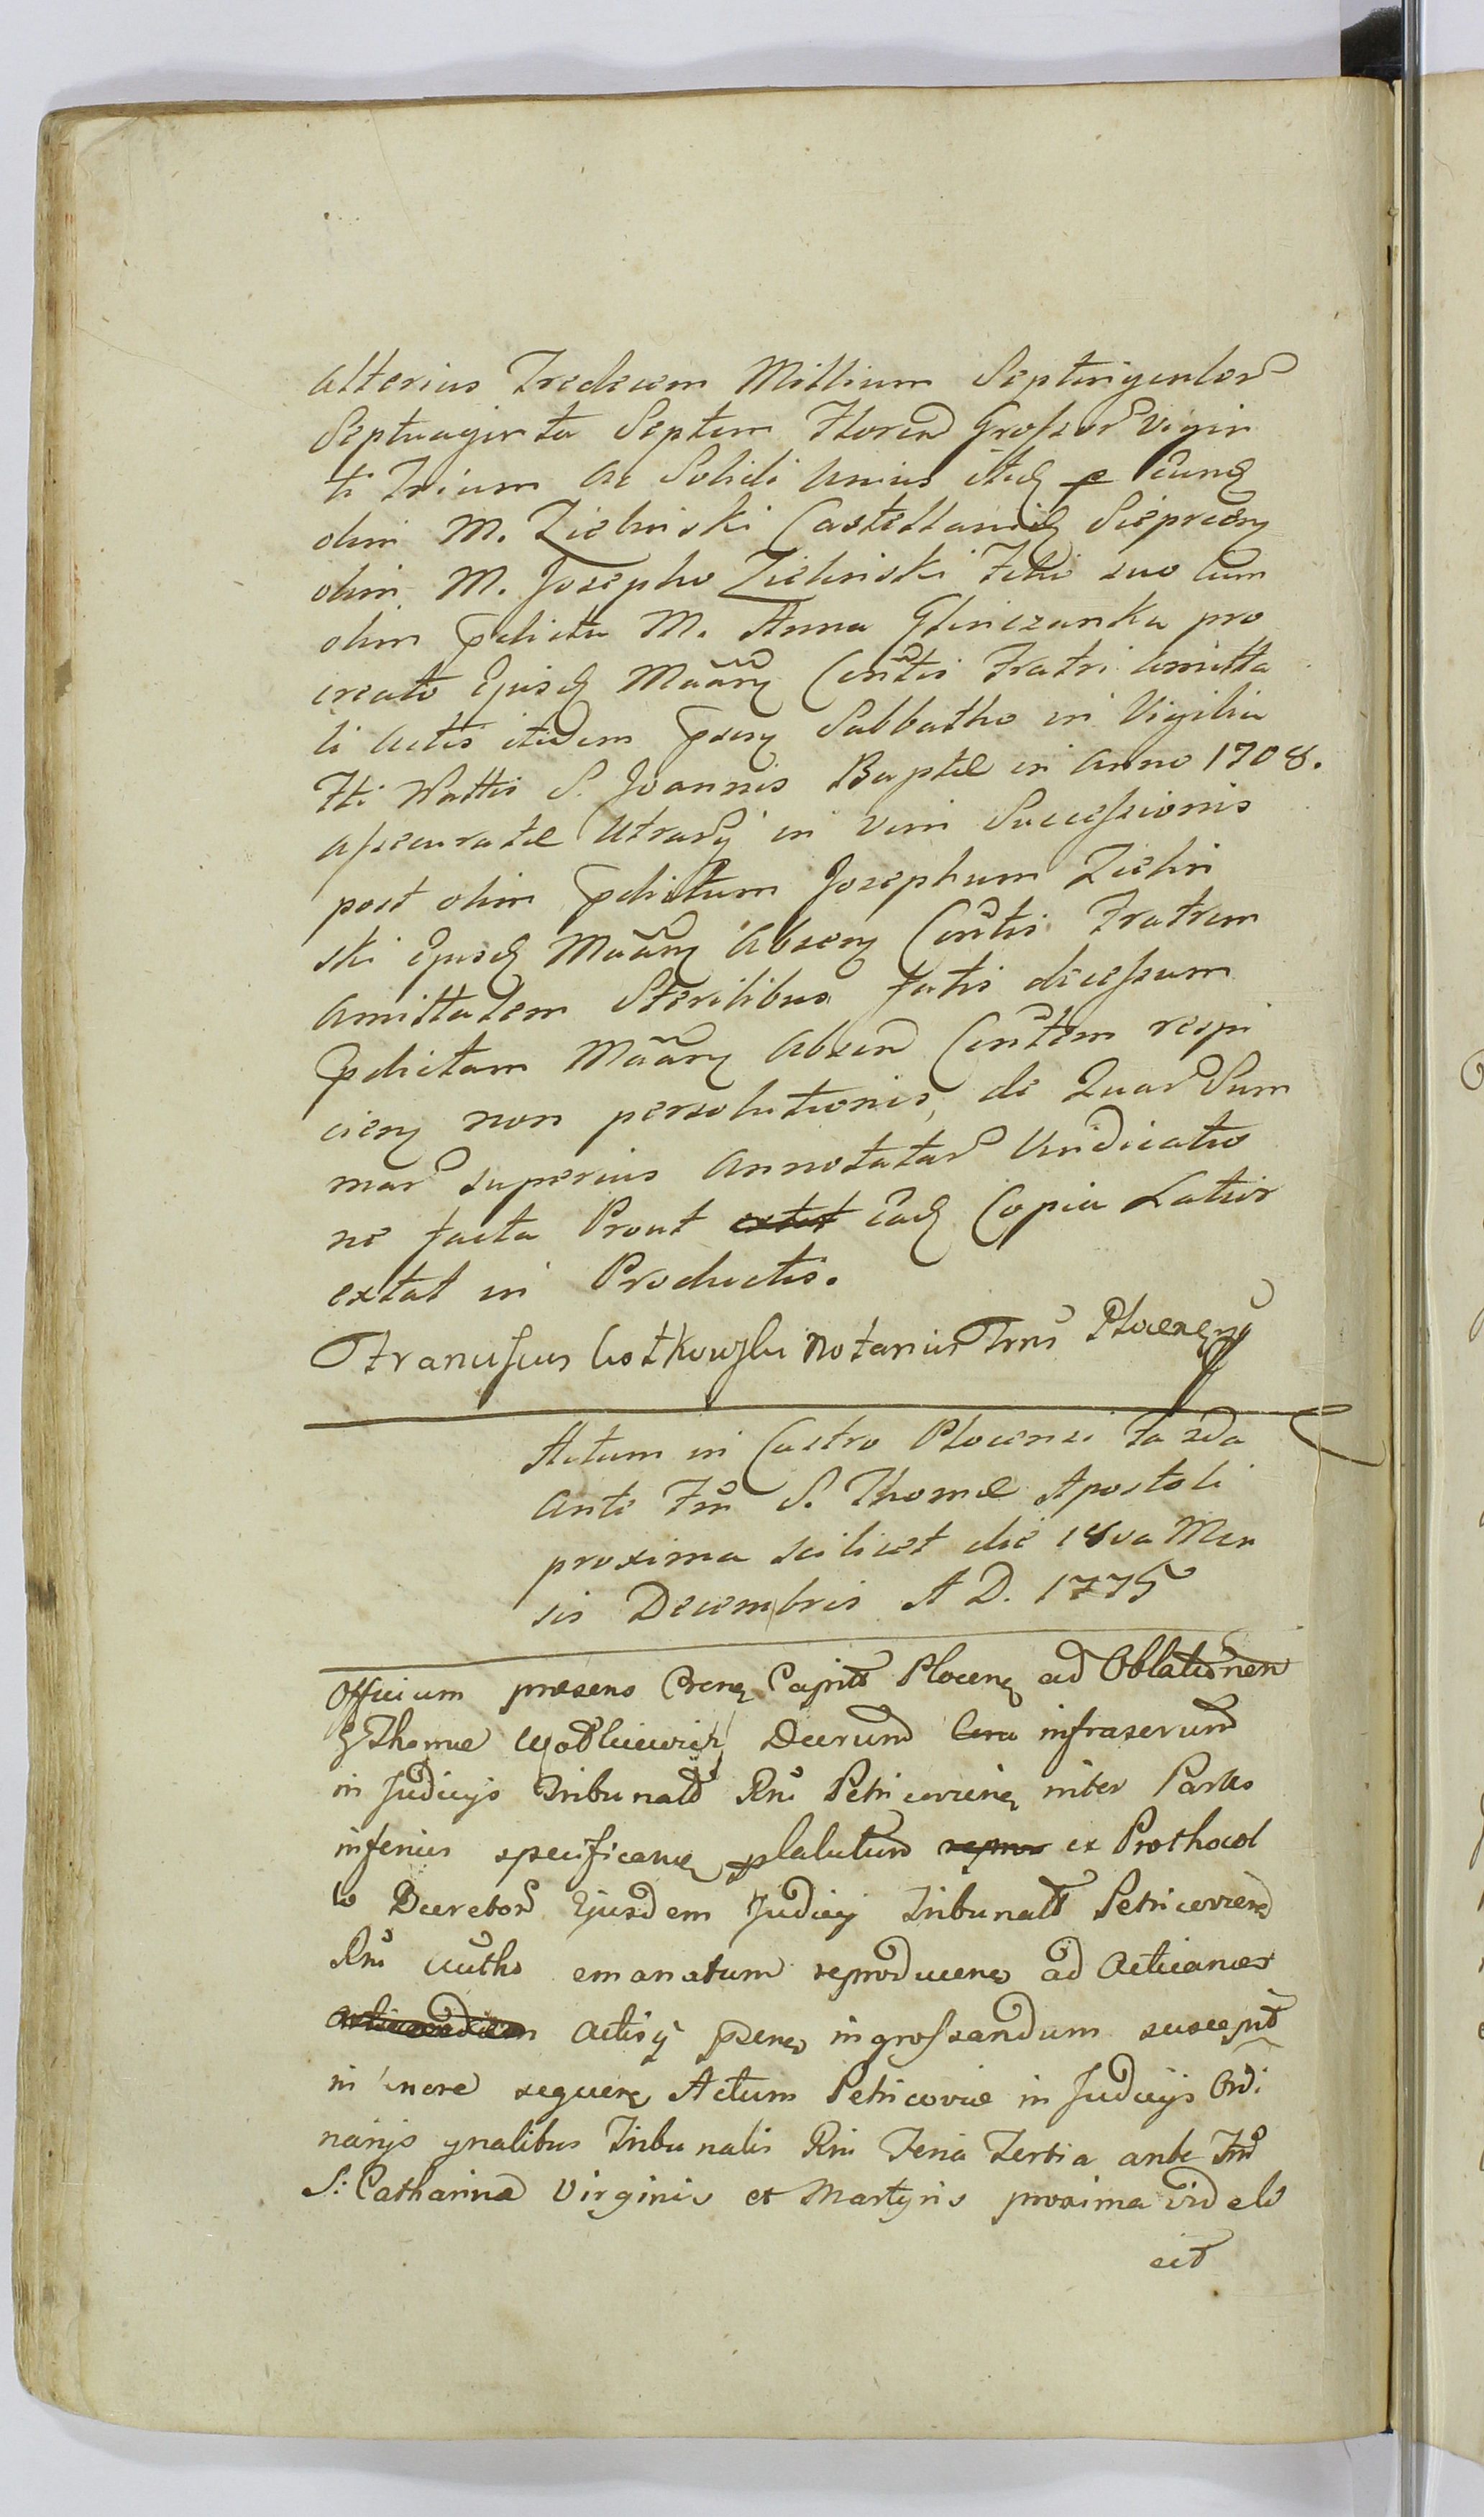 alterius Tredecem Millium Septingentor
Septuaginta Septem Floren Grossor Vigin
ti Trium ac Solidi Unius itidq p eundq
olim M. Zielinski Castellanidq Sieprceng
olim M. Josepho Zielinski Filio suo cum
olim pdicta M. Anna Glinczanka pro
creato Ejusdq Maäng Contis Fratri Amitta
li Actis itidem psens Sabbatho in Vigilia
Fti Nattis S. Joannis Baptæ in Anno 1708.
assecuratæ Utrarq in vim Successionis
post olim pdictum Josephum Zielin
ski Ejusdq Maäng Absenq Contis Fratrem
Amittalem Sterilibus fatis decessum
pdictam Maäng Absen Contem respi
cienq non persolutionis, de Quar Sum
mar superius Annotatar Vindicatio
ne facta Prout extat eadq Copia Latior
extat in Productis.
Franciscus Costkowski Notarius Trris Plocensis
Actum in Castro Plocensi Fa 2da
Ante Fm S. Thomæ Apostoli
proxima scilicet die 18va Men
sis Decembris A D. 1775
Officium præsens Crense Capite Plocenq ad Oblationem
G Thomæ Decrum infrascrum
in Judicijs Tribunals Rni Petricoviensq inter Partes
inferius specificanq platutum ex Prothocol
lo Decretor Ejusdem Judicij Tribunals Petricoviens
Rni Autho emanatum reproducens ad Acticanes
Actisq psens ingrossandum suscepit
in tenore sequenq Actum Petricoviæ in Judicijs Ordi
narijs gnalibus Tribunalis Rni Feria Tertia ante Fm
S: Catharinæ Virginis et Martyris proxima videli
cit